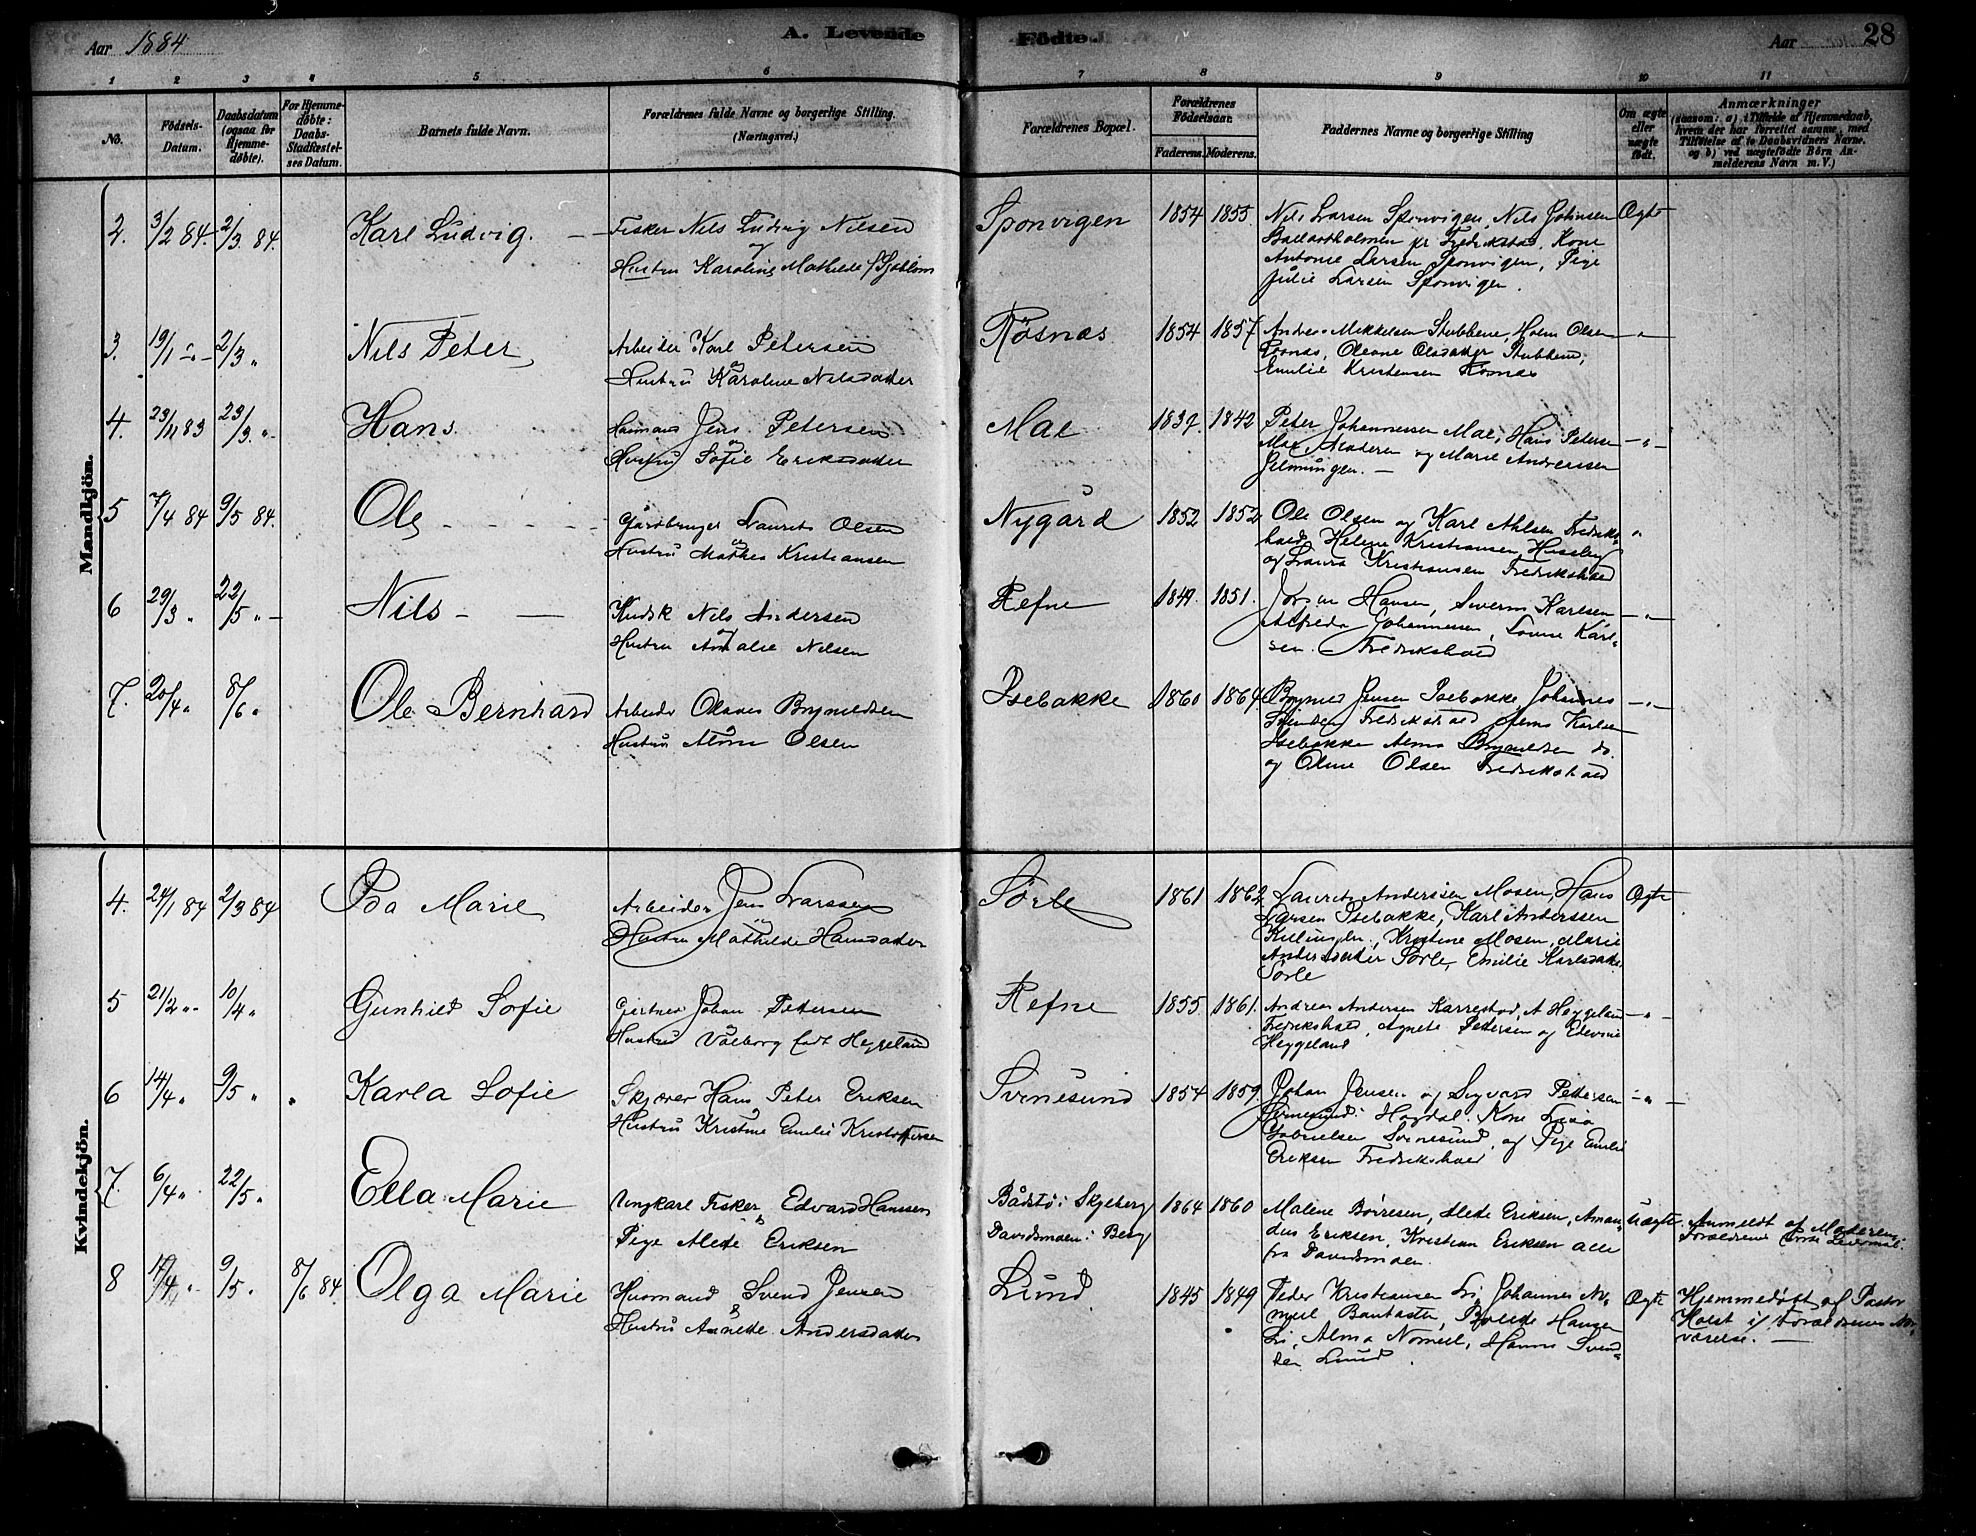 Aar 1884
A. Levende
Fødte.
Aar
28
1 2 3 4 5 6 7 8 9 10 11
No.
Fødsels-
Datum.
Daabsdatum
(ogsaa for
Hjemme-
døbte).
For Hjemme-
døbte:
Daabs-
Stadfæstel-
ses Datum.
Barnets fulde Navn.
Forældrenes fulde Navne og borgerlige Stilling.
(Næringsvei.)
Forældrenes Bopæl.
Forældrenes
Fødselsaar.
Faderens. Moderens.
Faddernes Navne og borgerlige Stilling
Om ægte
eller
uægte
født.
Anmærkninger
(saasom: a) i Tilfælde af Hjemmedaab,
hvem der har forrettet samme, med
Tilføielse af to Daabsvidners Navne,
og b) ved uægtefødte Børn An-
melderens Navn m. V.)
Mandkjön.
2. 3/2 84. 2/3 84. Karl Ludvig. Fisker Nils Ludvig Nilsen
og
Hustru Karoline Mathilde
Sponvigen 1854 1855 Nils Larsen Sponvigen, Nils Johnsen Ægte
pr Fredrikstad, Kone
Antonie Larsen Sponvigen, Pige
Julie Larsen Sponvigen.
3. 19/1 2/3 " Nils Peter Arbeider Karl Petersen
og
Hustru Karoline Nilsdatter
Røsnæs 1854 1857 Andreas Mikkelsen Stubbene, Holm Olsen
Røsnæs, Oleane Olsdatter Stubbene,
Emilie Kristensen Røsnæs
4. 23/11 83 23/3 " Hans Husmand Jens Petersen
og
Hustru Sofie Eriksdatter
Mae 1837. 1842 Peter Johannessen Mae, Hans Petersen
Mae, Moderen og Marie Andreassen
5 7/4 84 9/5 84. Ole Gårdbruger Laurits Olsen
og
Hustru Mathea Kristiansen
Nygård 1852 1852 Ole Olsen og Karl Ahlsen Fredriks-
hald, Helene Kristiansen
og Laura Kristiansen Fredrikshald
6 29/3 " 22/5 " Nils Kudsk Nils Andersen
og
Hustru Amalie Nilsen
Refne 1849. 1851. Hansen, Severin Karlsen
Alfreda Johannessen, Lovise Karl-
sen. Fredrikshald
7. 20/4 " 8/6 " Ole Bernhard Arbeider Olaves Brynildsen
Hustru Olsen
Isebakke 1860 1864 Brynild Jensen Isebakke, Johannes
Svendsen Fredrikshald, Karlsen
Isebakke Alma Brynildsen do.
og Oline Olsen Fredrikshald
Kvindekjön.
4. 24/1 84 2/3 84 Ida Marie Arbeider Jens Larssen
og
Hustru Mathilde Hansdatter
Sørle 1861 1862 Laurits Anderssen Mosen, Hans Ægte
Larsen Isebakke, Karl Anderssen
Kristine Mosen, Marie
Andersdatter Sørle, Emilie Karlsdatter
Sørle
5 21/2 " 10/4 " Gunhild Sofie Gartner Johan Petersen
og
Hustru Valborg født Heggeland
Refne 1855 1861. Andreas Andersen Karrestad, A Heggeland
Fredrikshald, Agnete Petersen og
Heggeland
6 14/4 " 9/5 " Karla Sofie Skjærer Hans Peter Eriksen
og
Hustru Kristine Emilie Kristoffersen
Svinesund 1854 1859 Johan Jensen og Sigvard Pettersen
Svinesund i Hogdal, Kone
Gabrielsen Svinesund, og Pige Emilie
Eriksen Fredrikshald
7. 6/4 " 22/5 " Ella Marie Ungkarl Fisker Edvard Hanssen
&
Pige Alede Eriksen
Bådstø i Skjeberg
Davidsmoen i Berg
1864 1860 Malene Børresen, Alede Eriksen, Aman- Uægte.
dus Eriksen, Kristian Eriksen alle
fra Davidsmoen.
Anmeldt af Moderen,
Forældrenes første Leiermål.
8 9/5 " 8/6 84 Olga Marie Husmand Svend Jensen
&
Hustru Annette Andersdatter
Lund 1845 1849 Peder Kristiansen Li, Johannes No- Ægte
meel Hansen
Li, Alma Nomeel, Hanna Svend-
sen Lund.
Hjemmedøbt af Pastor
Holst i Forældrenes Nær-
værelse.